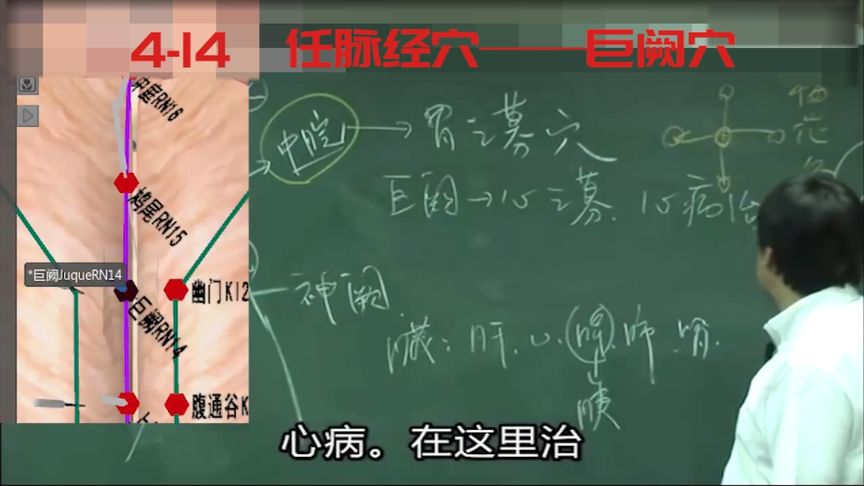 4-14 任脉经穴——巨阙穴
中庭RN16
鸠尾RN15
*巨阙JuqueRN14
巨阙RN14
幽门K12
腹通谷K
中脘→胃之募穴
巨阙→心之募. 心病治
神阙
臟: 肝. 心
肺. 腎.
心病。在这里治